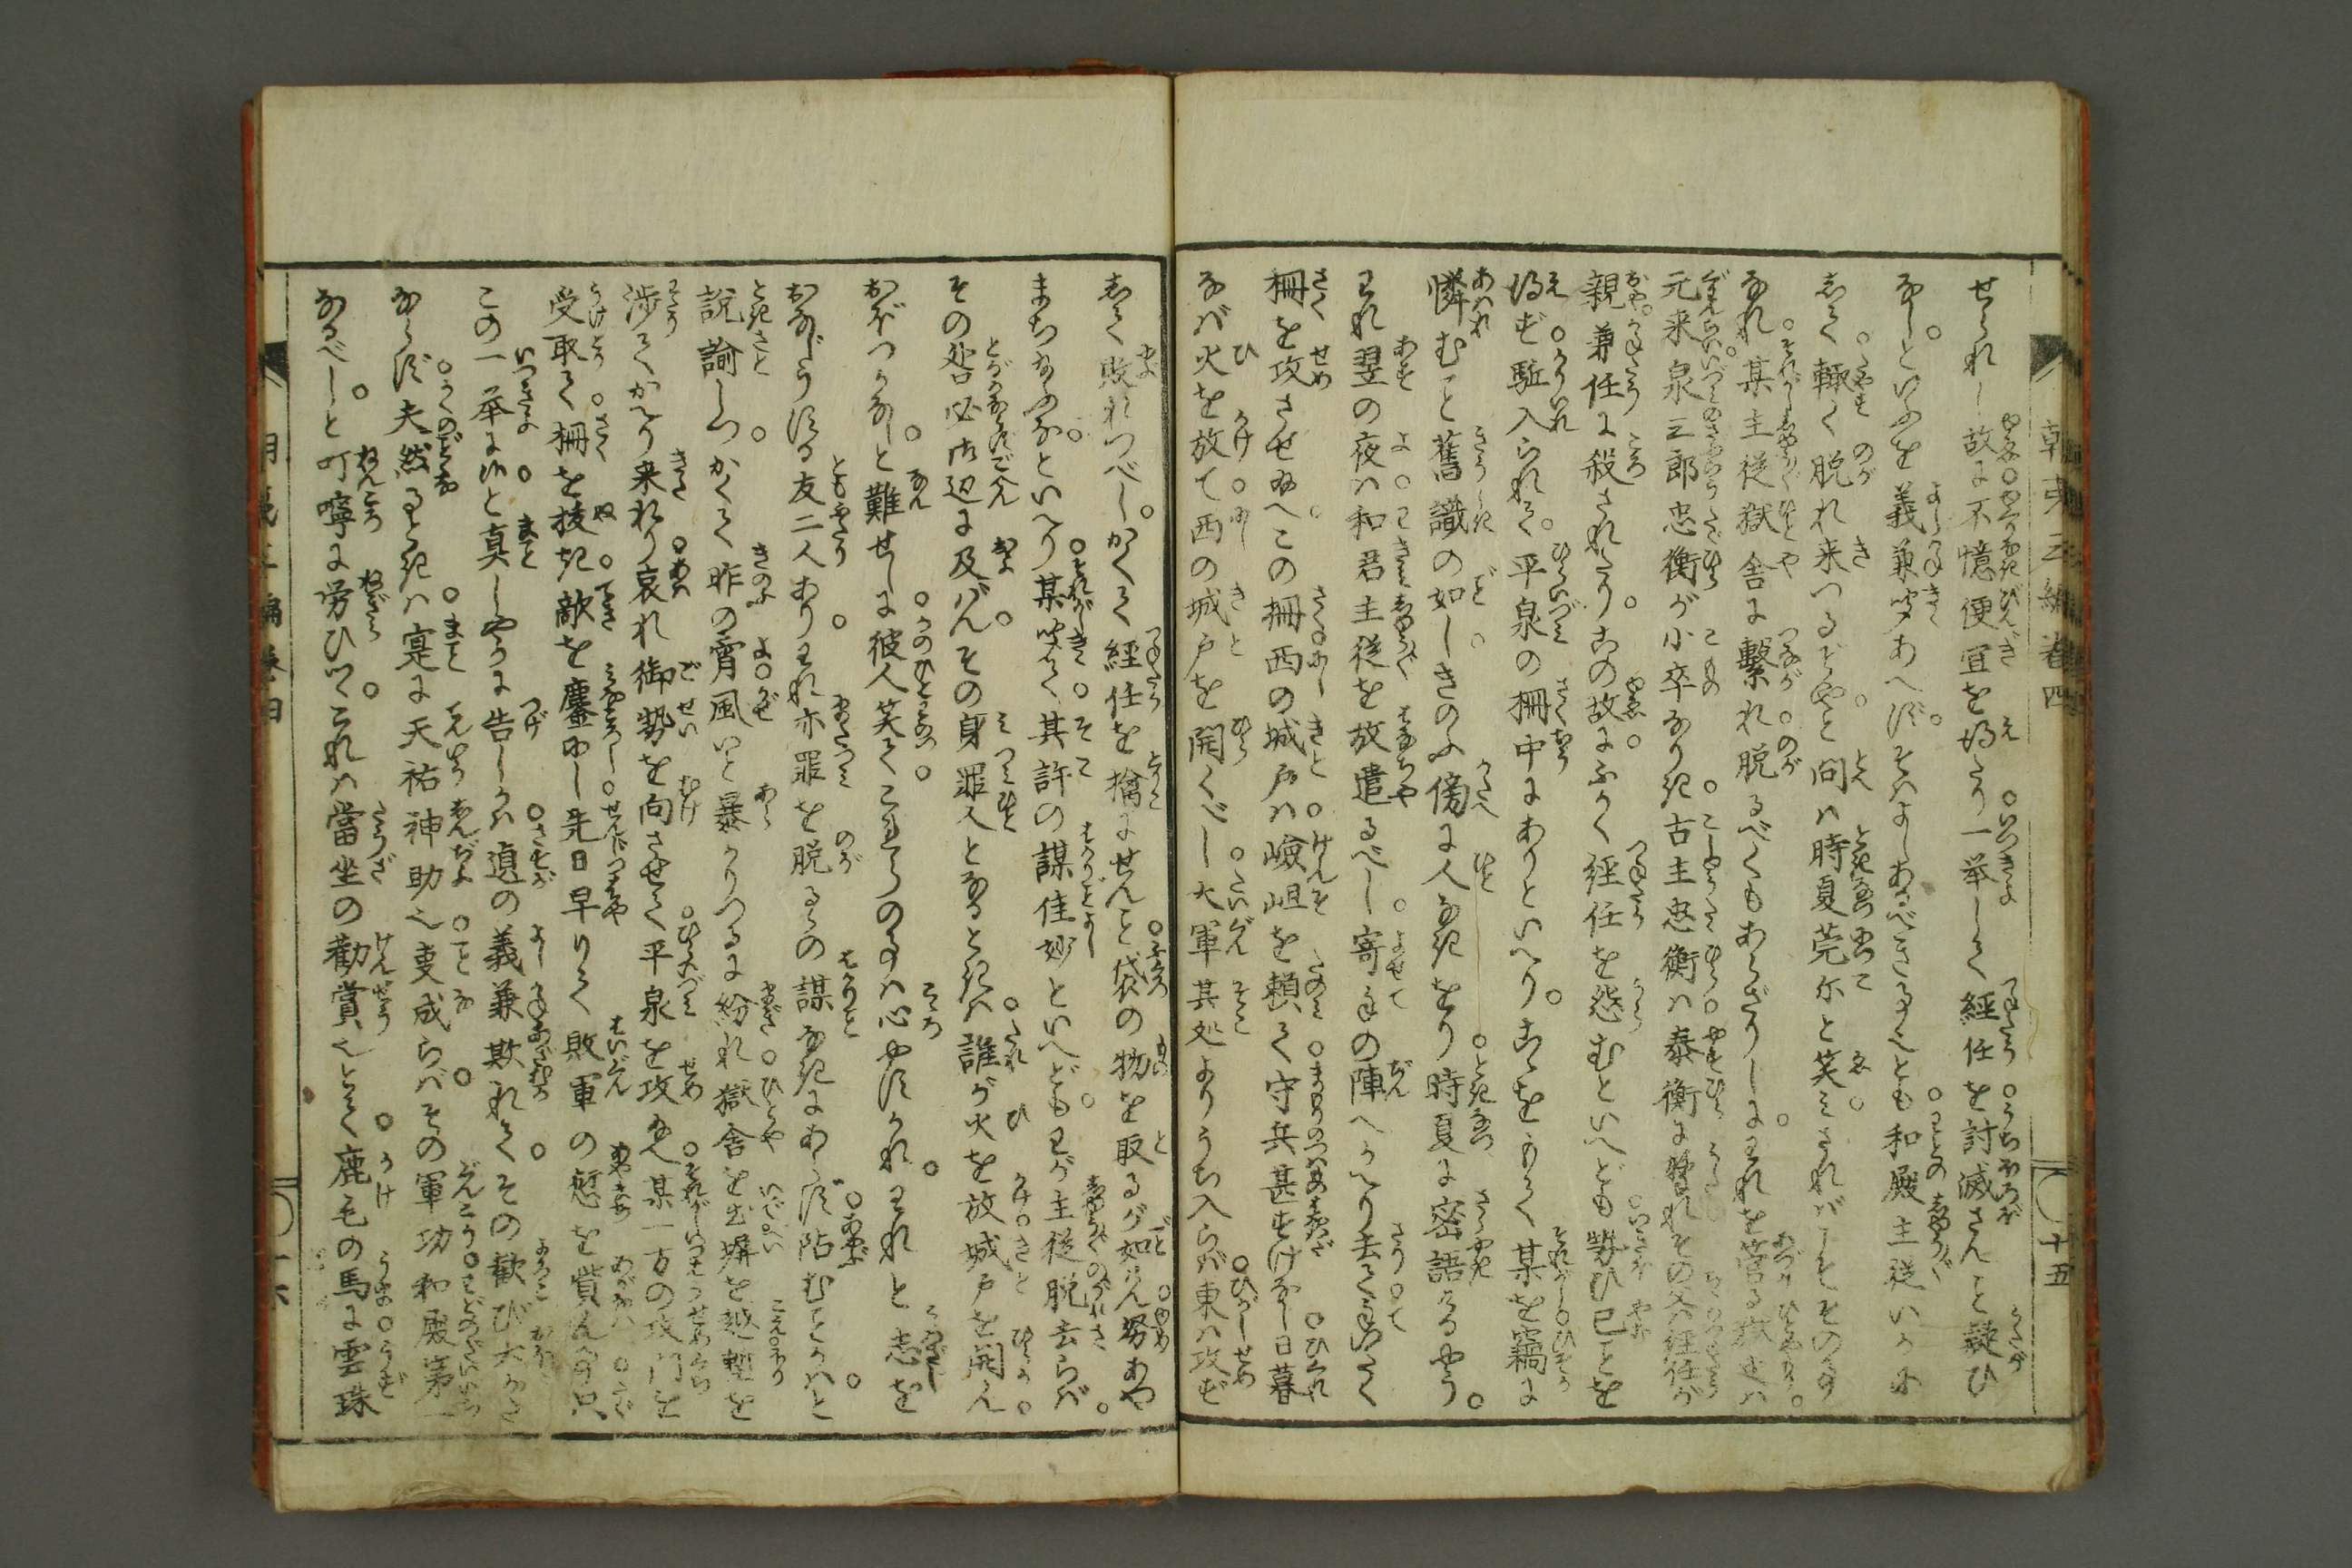 朝夷三編巻四
十五
せられし故に不憶便宜を得たり一挙して経任を討滅さんと疑ひ
なしといふを義兼聞あへずそはよしあるべき事とも和殿主従いかに
して輙く脱れ来つるぞやと問ば時夏莞尓と笑みさればとよその事
なれ某主従獄舎に繋れ脱るべくもあらざりしにわれを管る獄卒は
元来泉三郎忠衡が小卒なりき古主忠衡は泰衡に その父経任が
親兼任に殺されたりこの故にふかく経任を怨むといへども勢ひ已ことを
得ず駈入られて平泉の柵中にありといへりかゝるをもて某を竊に
憐むこと舊識の如しきのふ傍に人なきをり時夏に密語するやう
われ翌の夜は和君主従を放遣るべし寄手の陣へかへり去て
柵を攻させ給へこの柵西の城戸は嶮岨を頼て守兵甚すけなし日暮
なば火を放て西の城戸を開くべし大軍其処よりうち入らば東は攻ず
して敗れつべしかくて経任を擒にせんこと袋の物を取るが如けん努あや
まち給ふなといへり某聞て其許の謀佳妙といへどもわが主従脱去らば
その咎必御辺に及ばんその身罪人となるときは誰が火を放城戸を開ん
おぼつかなしと難ぜしに彼人笑てこれらの事は心やすかれわれと志を
おなじうする友二人ありわれ亦罪を脱るゝの謀なきにあらず阽むことかはと
説諭しつかくて昨の宵風いと暴かりつるに紛れ獄舎を出塀を越塹を
渉てかへり来れり哀れ御勢を向させて平泉を攻給へ某一方の攻門を
受取て柵を抜き敵を鏖にし先日早りて敗軍の愆を贖んもの只
この一挙に候と真しやかに告しかば 義兼欺れてその歓び大かた
ならず夫然るときは寔に天祐神助也事成らばその軍功和殿第一
なるべしと叮嚀に労ひつこれは當坐の勸賞也とて鹿毛の馬に雲珠